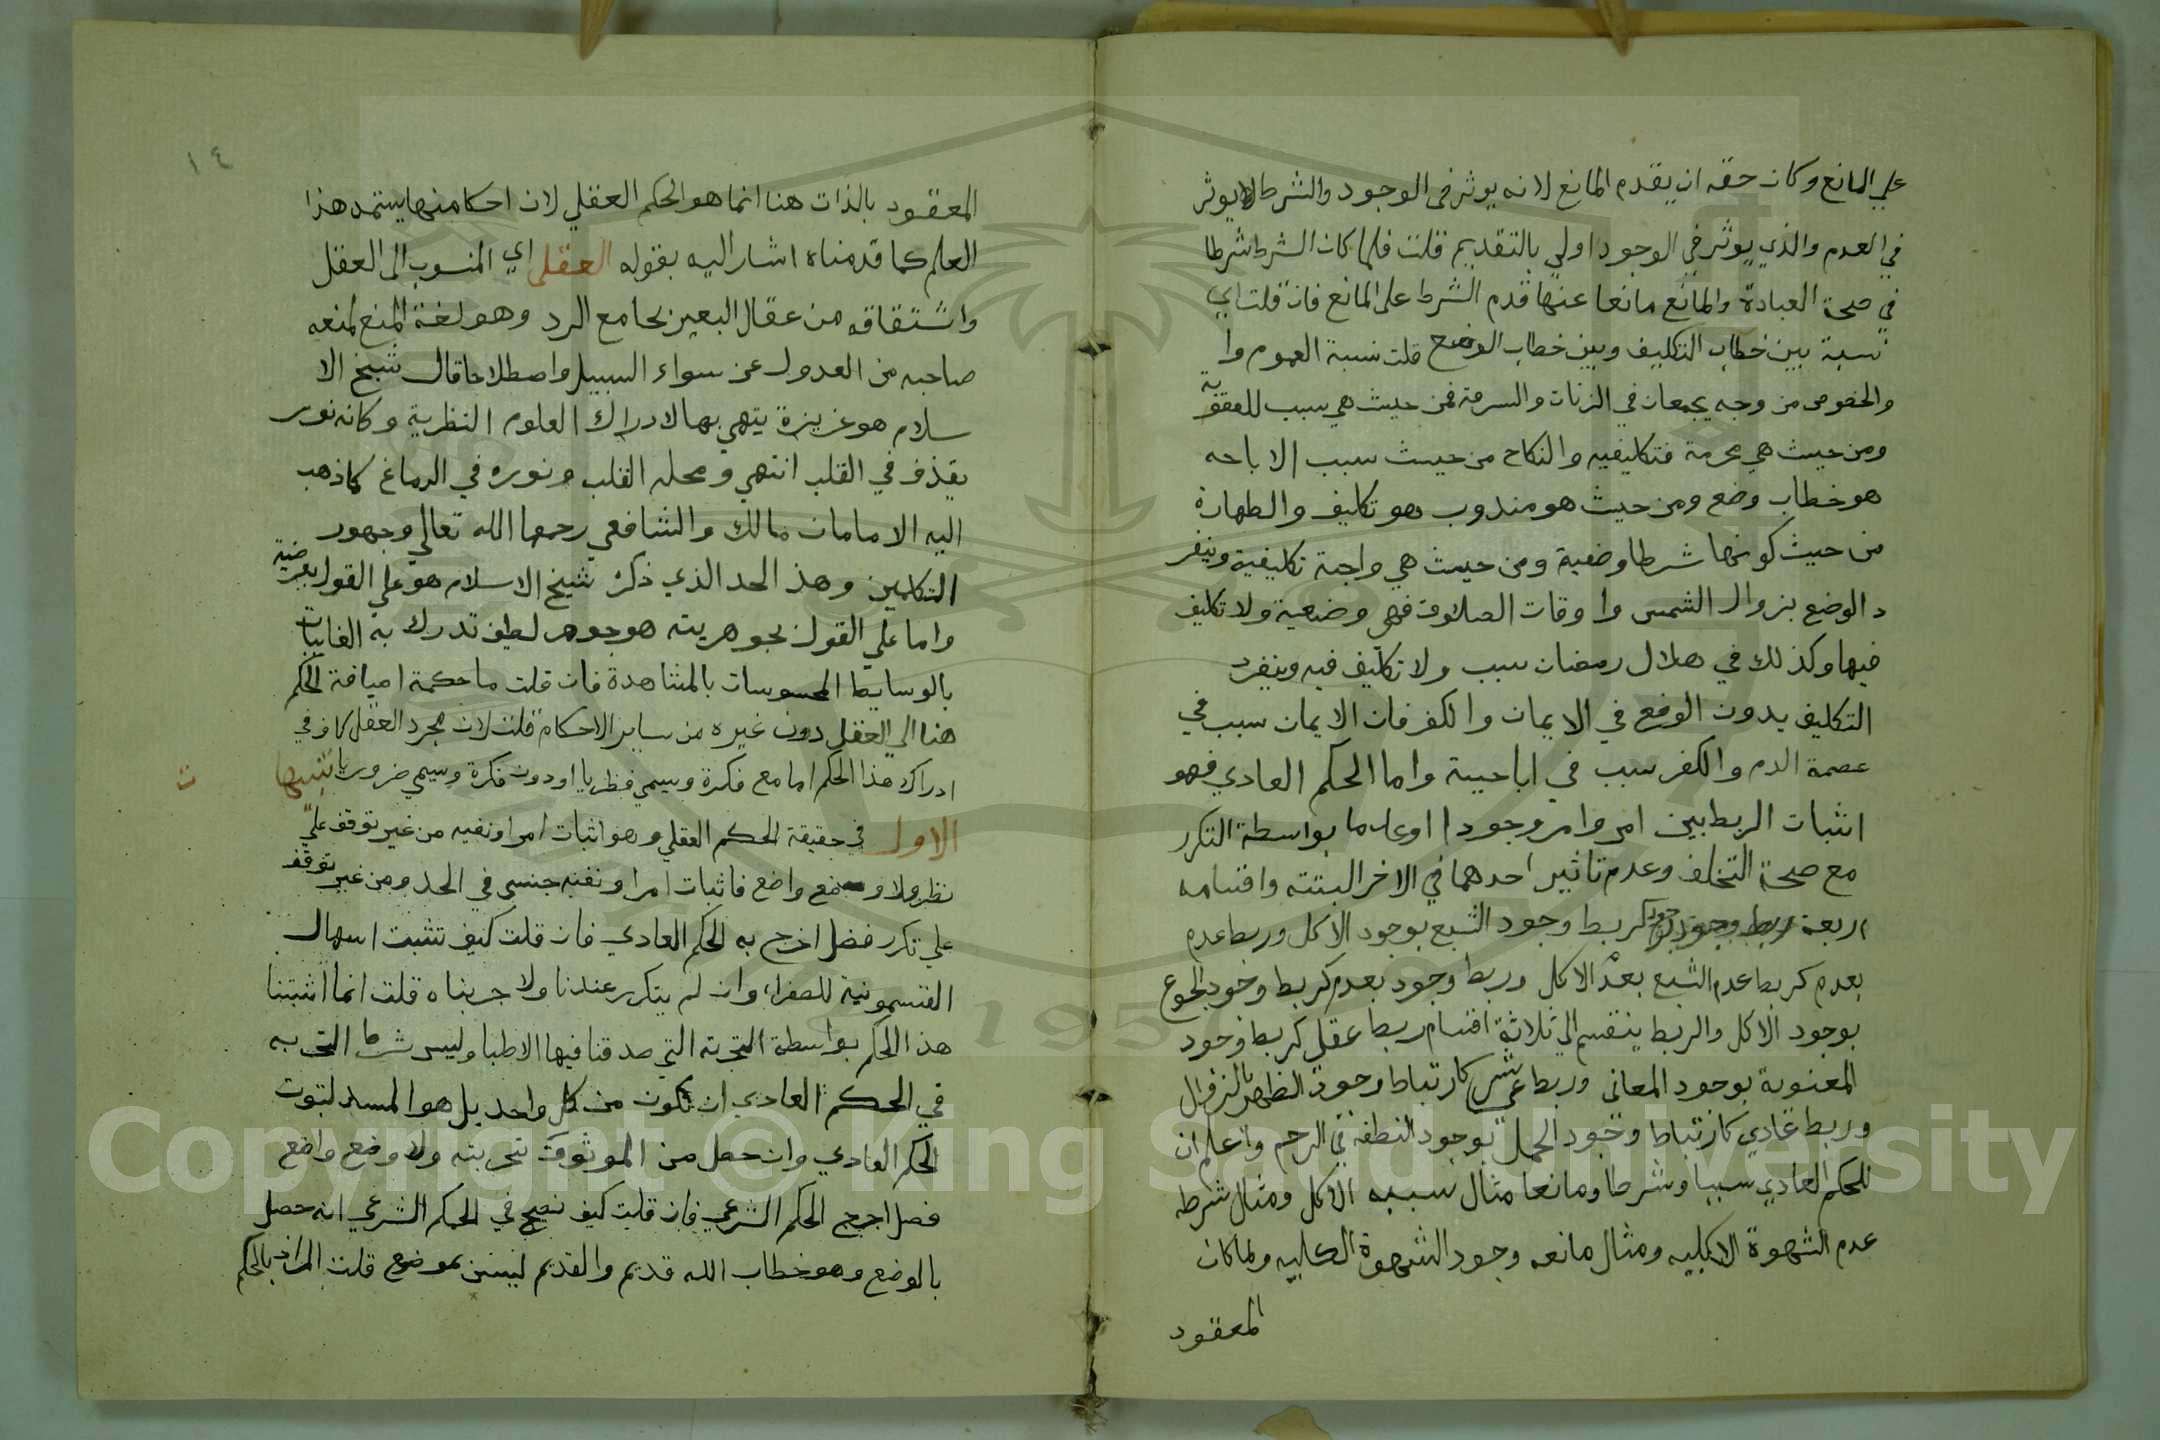 علي المانع وكان حقه ان يقدم المانع لانه يوثر في الوجود والشرط لا يوثر
في العدم والذي يوثر في الوجود اولي بالتقديم قلت فلما كان الشرط شرطا
في صحة العبادة والمانع مانعا عنها قدم الشرط على المانع فان قلت اي
نسبة بين خطاب التكليف وبين خطاب الوضع قلت نسبة العموم وا
والخصوص من وجه يجمعان في الزنات والسرقة فمن حيث هي سبب للعقوبة
ومن حيث هي محرمة فتكليفيه والنكاح من حيث سبب الاباحه
هو خطاب وضع ومن حيث هو مندوب هو تكليف والطهارة
من حيث كونها شرطا وضعية ومن حيث هي واجبة تكليفية وينفر
د الوضع بزوال الشمس واوقات الصلاوة فهي وضعية ولا تكليف
فيها وكذلك في هلال رمضان سبب ولا تكليف فيه وينفرد
التكليف بدون الوضع في الايمان والكفر فان الايمان سبب في
عصمة الدم والكفر سبب في اباحيته واما الحكم العادي فهو
اثبات الربط بين امر وامر وجودا او عدما بواسطة التكرر
مع صحة التخلف وعدم تاثير احدهما في الاخر البتته واقسامه
اربعة ربط وجود كربط وجود الشبع بوجود الاكل وربط عدم
بعدم كربط عدم الشبع بعدم الاكل وربط وجود بعدم كربط وجود الجوع
بوجود الاكل والربط ينقسم الي ثلاثة اقسام ربط عقل كربط وجود
المعنوية بوجود المعاني وربط شرعي كارتباط وجود الظهر بالزوال
وربط عادي كارتباط وجود الحمل بوجود النطفة في الرحم واعلم ان
للحكم العادي سببا وشرطا ومانعا مثال سببه الاكل ومثال شرطه
عدم الشهوة الاكليه ومثال مانعه وجود الشهوة الكلبيه ولما كان
المعقود
١٤
المعقود بالذات هنا انما هو الحكم العقلي لان احكامنها يستمد هذا
العلم كما قدمناه اشار اليه بقوله العقلي اي المنسوب الى العقل
واشتقاقه من عقال البعير بجامع الرد وهو لغة المنع لمنعه
صاحبه من العدول عن سواء السبيل واصطلاحا قال شيخ الا
سلام هو غريزة يتهي بها لادراك العلوم النظرية وكانه نور
يقذف في القلب انتهي ومحله القلب ونوره في الدماغ كما ذهب
اليه الامامان مالك والشافعي رحمهما الله تعالي وجهور
المتكلمين وهذ الحد الذي ذكره شيخ الاسلام هو علي القول بعرضيته
واما علي القول بجوهريته هو جوهر لطيف تدرك به الغايبات
بالوسايط المحسوسات بالمشاهدة فان قلت ما حكمة اضافة الحكم
هنا الي العقل دون غيره من ساير الاحكام قلت لان مجرد العقل كاف في
ادراك هذا الحكم اما مع فكرة ويسمي نظريا او دون فكرة ويسمي ضروريا تنبيها
ت
الاول في حقيقة الحكم العقلي وهو اثبات امر او نفيه من غير توقف علي
نظر ولا وضع واضع فاثبات امر او نفيه جنس في الحد ومن غير توقف
علي تكرر فصل اخرج به الحكم العادي فان قلت كيف تثبت اسهال
القسمونية للصفراء وان لم يتكرر عندنا ولا جربناه قلت انما اثبتنا
هذ الحكم بواسطة التجربة التي صدقنا فيها الاطبا وليس شرط التجربه
في الحكم العادي ان يكون من كل واحد بل هو المسند لثبوت
الحكم العادي وان حصل من الموثوق بتجربته ولا وضع واضع
فصل اخرج الحكم الشرعي فان قلت كيف نصح في الحكم الشرعي انه حصل
بالوضع وهو خطاب الله قديم والقديم ليس بموضوع قلت المراد بالحكم
Copyright © King Saud University
1957